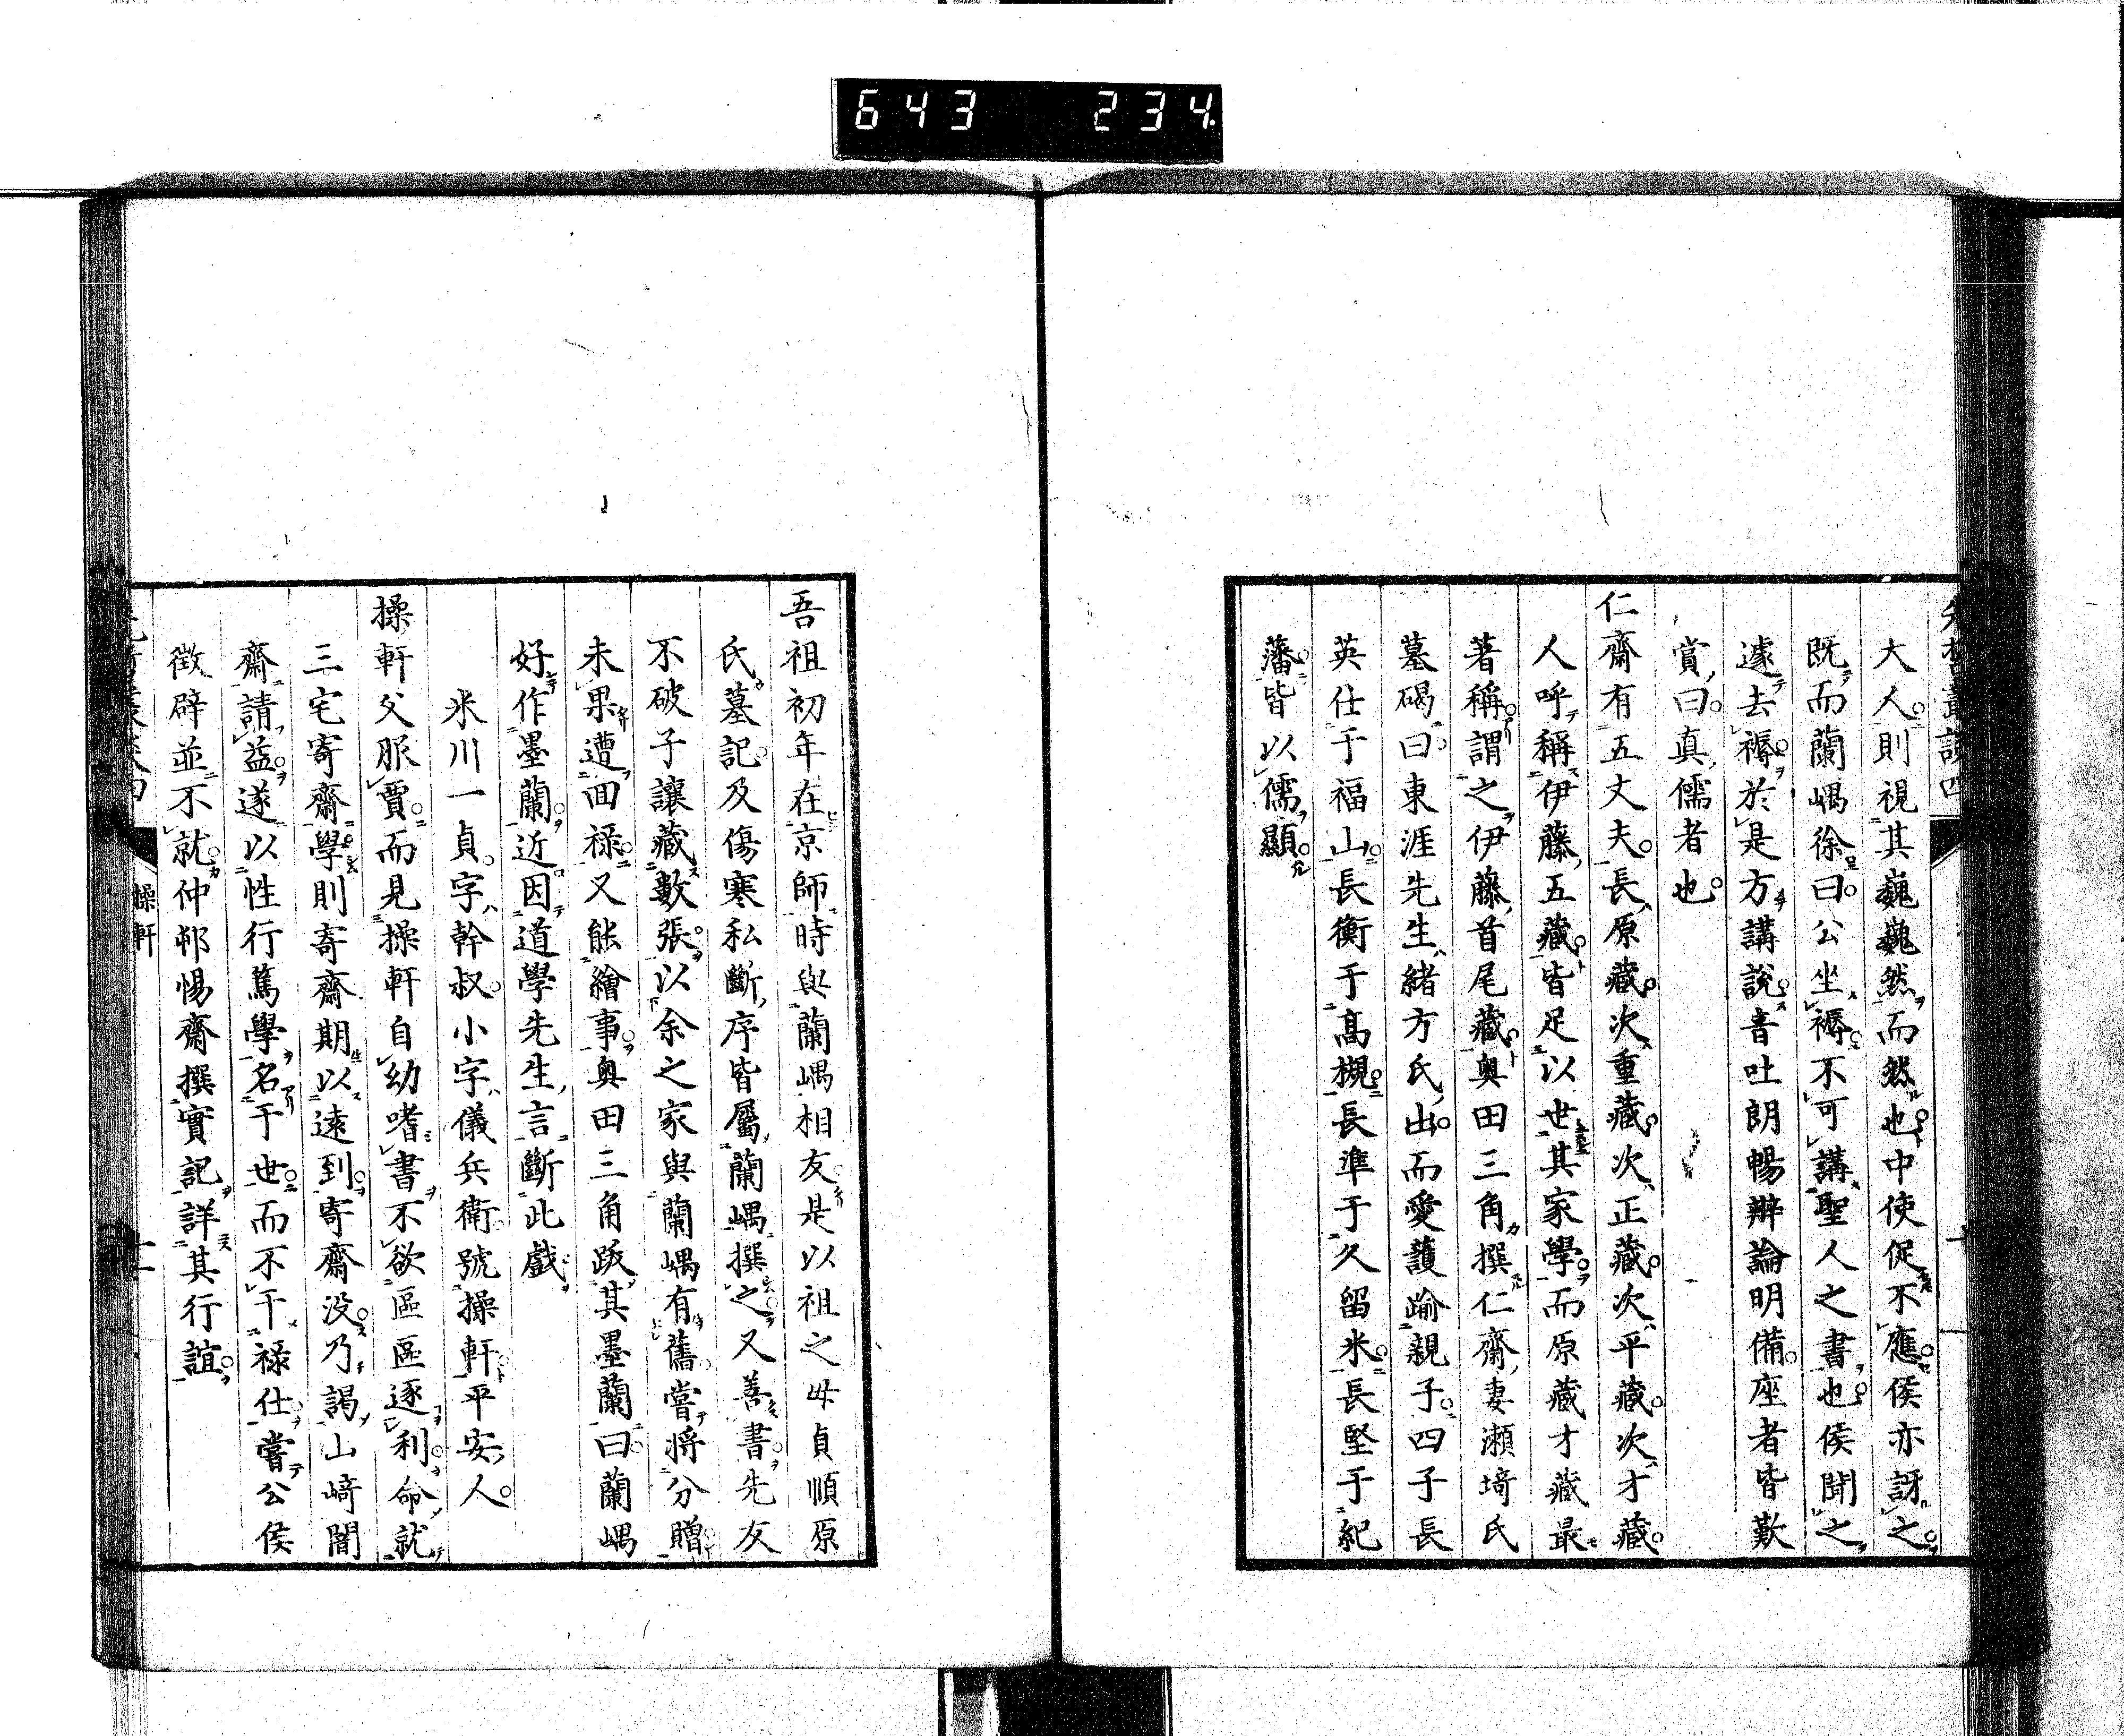 643 234
大人則視其巍巍然而然也中使促不應侯亦訝之
既而蘭嵎徐曰公坐褥不可講聖人之書也侯聞之
遽去褥於是方講說音吐朗暢辨論明備座者皆歎
賞曰真儒者也
仁齋有五丈夫長原藏次重藏次正藏次平藏次才藏
人呼稱伊藤五藏皆足以世其家學而原藏才藏最
著稱謂之伊藤首尾藏奥田三角撰仁齋妻瀬埼氏
墓碣曰東涯先生緒方氏出而愛護踰親子四子長
英仕于福山長衡于高槻長準于久留米長堅于紀
藩皆以儒顯
吾祖初年在京師時與蘭嵎相友是以祖之母貞順原
氏墓記及傷寒私斷序皆屬蘭嵎撰之又善書先友
不破子讓藏數張以余之家與蘭嵎有舊嘗將分贈
未果遭回祿又能繪事奥田三角跋其墨蘭曰蘭嵎
好作墨蘭近因道學先生言斷此戲
米川一貞字幹叔小字儀兵衛號操軒平安人
操軒父服賈而見操軒自幼嗜書不欲區區逐利命就
三宅寄齋學則寄齋期以遠到寄齋没乃謁山﨑闇
齋請益遂以性行篤學名于世而不干祿仕嘗公侯
徵辟並不就仲邨惕齋撰實記詳其行誼
操軒